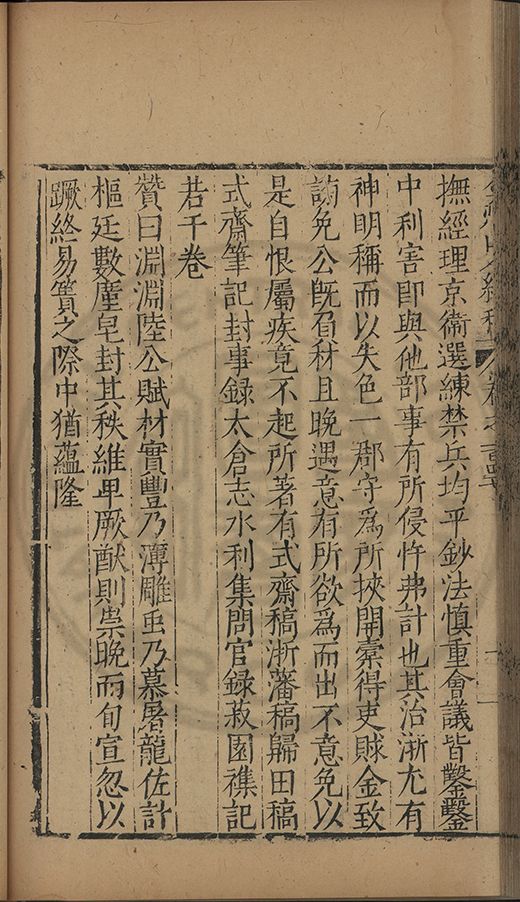 撫經理京衛選練禁兵均平鈔法慎重會議皆鑿鑿
中利害即與他部事有所侵忤弗計也其治浙尤有
神明稱而以失色一郡守爲所挾開橐得吏賕金致
訥免公旣負材且晚遇意有所欲爲而出不意免以
是自恨屬疾竟不起所著有式齋稿浙藩稿歸田稿
式齋筆記封事録太倉志水利集問官録菽園襍記
若干卷
贊曰淵淵陸公賦材實豐乃薄雕虫乃慕屠龍佐計
樞廷數廑皂封其秩維卑厥猷則崇晚而旬宣忽以
蹶終易簀之際中猶蘊隆